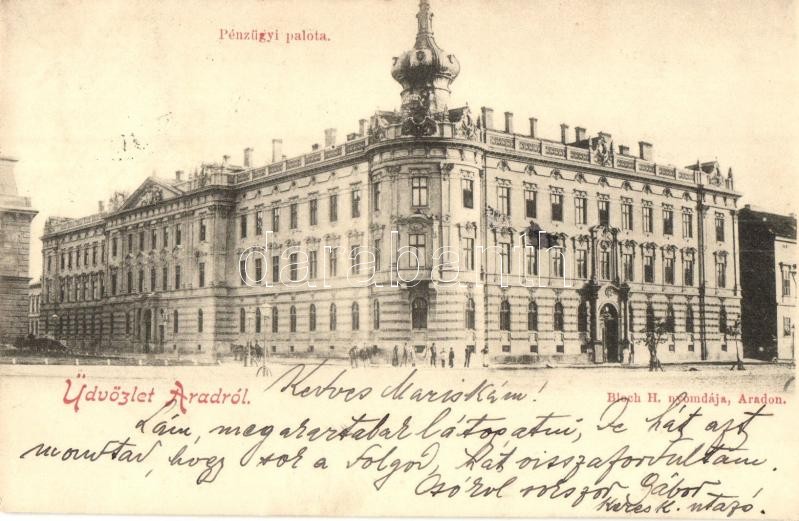 Pénzügyi palota.
darabanth
Üdvözlet Aradról.
Bloch H. nyomdája, Aradon.
Kedves Mariskám!
Lám, megakartalak látogatni, De hát azt
mondtad, hogy sok a dolgod, hát visszafordultam.
Csókol sokszor Gábor
keresk. utazó.